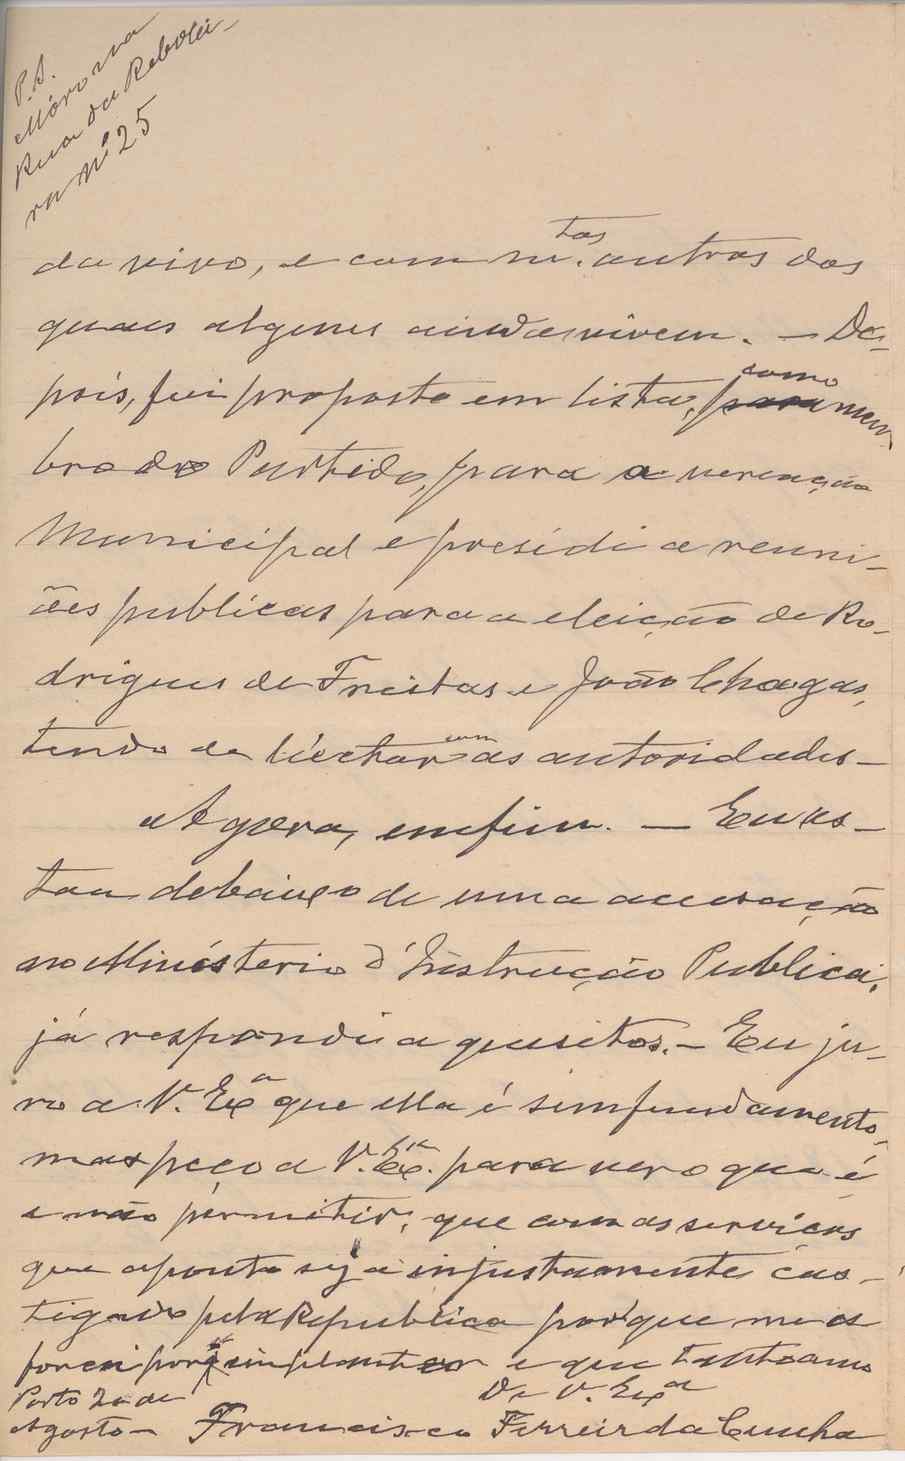 P.S.
Móro na
Rua da Rebolei-
ra Nº 25
da vivo, e com m.tos outros dos
quaes alguns ainda vivem. — De-
pois, fui proposto em lista, para como mem-
bro do Partido, para a vereação
Municipal e presidi a reuni-
ões publicas para a eleição de Ro-
drigues de Freitas e João Chagas,
tendo de luctar com as autoridades —
Agora, emfim. — Eu es-
tou debaixo de uma accusação
no Ministerio d'Instrução Publica,
já respondi a quesitos. — Eu ju-
ro a V. Exª que ella é sem fundamento,
mas peço a V. Exª. para ver o que é
e não permitir, que com os serviços
que aponto seja injustamente cas-
tigado pela Republica por que me es
forcei por implantar e que tanto amo
De V. Exª
Porto 20 de
Agosto — Francisco Ferreira da Cunha